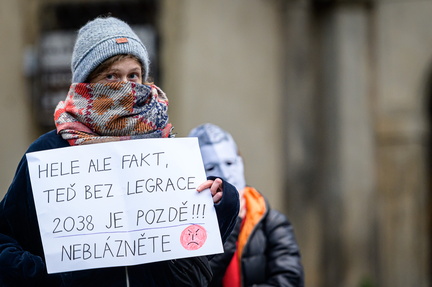 HELE ALE FAKT,
TEĎ BEZ LEGRACE
2038 JE POZDĚ!!!
NEBLÁZNĚTE